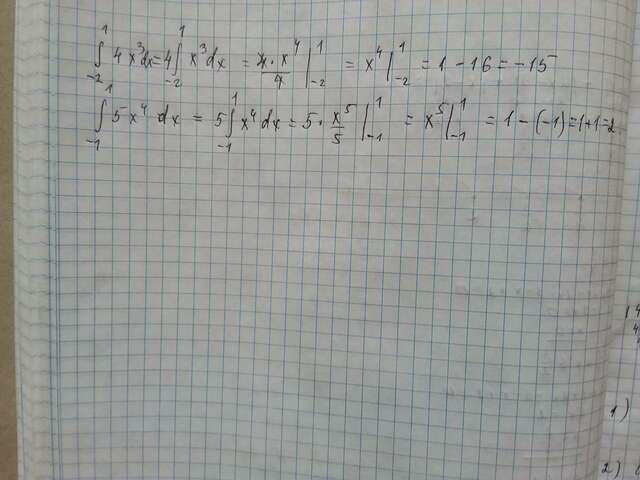 ∫₋₂¹ 4x³dx = 4∫₋₂¹ x³dx = 4·x⁴/4 |₋₂¹ = x⁴|₋₂¹ = 1 - 16 = -15
∫₋₁¹ 5x⁴ dx = 5∫₋₁¹ x⁴ dx = 5·x⁵/5 |₋₁¹ = x⁵|₋₁¹ = 1 - (-1) = 1+1=2
1)
2)